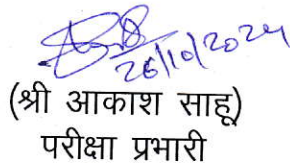 26/10/2024
(श्री आकाश साहू)
परीक्षा प्रभारी